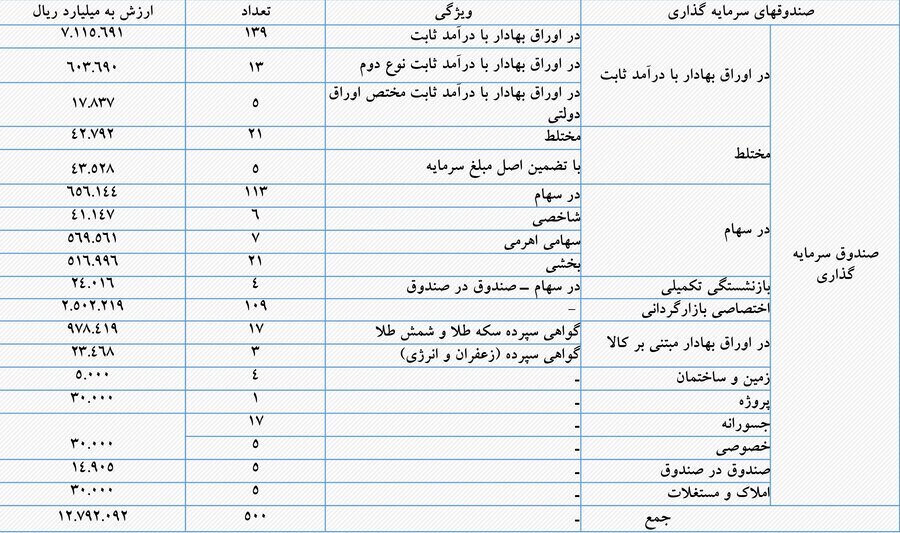 صندوقهای سرمایه گذاری ویژگی تعداد ارزش به میلیارد ریال
صندوق سرمایه گذاری
در اوراق بهادار با درآمد ثابت
در اوراق بهادار با درآمد ثابت ۱۳۹ ۷.۱۱۵.۶۹۱
در اوراق بهادار با درآمد ثابت نوع دوم ۱۳ ۶۰۳.۶۹۰
در اوراق بهادار با درآمد ثابت مختص اوراق
دولتی ۵ ۱۷.۸۳۷
مختلط
مختلط ۲۱ ۴۲.۷۹۲
با تضمین اصل مبلغ سرمایه ۵ ۴۳.۵۲۸
در سهام
در سهام ۱۱۳ ۶۵۶.۱۴۴
شاخصی ۶ ۴۱.۱۴۷
سهامی اهرمی ۷ ۵۶۹.۵۶۱
بخشی ۲۱ ۵۱۶.۹۹۶
بازنشستگی تکمیلی در سهام – صندوق در صندوق ۴ ۲۴.۰۱۶
اختصاصی بازارگردانی – ۱۰۹ ۲.۵۰۲.۲۱۹
در اوراق بهادار مبتنی بر کالا
گواهی سپرده سکه طلا و شمش طلا ۱۷ ۹۷۸.۴۱۹
گواهی سپرده (زعفران و انرژی) ۳ ۲۳.۴۶۸
زمین و ساختمان - ۴ ۵.۰۰۰
پروژه - ۱ ۳۰.۰۰۰
جسورانه - ۱۷
خصوصی - ۵ ۳۰.۰۰۰
صندوق در صندوق - ۵ ۱۴.۹۰۵
املاک و مستغلات - ۵ ۳۰.۰۰۰
جمع - ۵۰۰ ۱۲.۷۹۲.۰۹۲